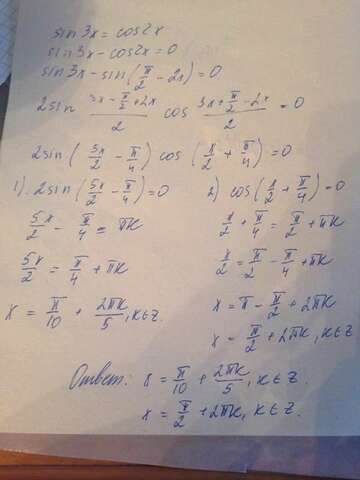 sin 3x = cos2x
sin 3x - cos2x = 0
sin 3x - sin(π/2 - 2x) = 0
2sin (3x - π/2 + 2x)/2 cos (3x + π/2 - 2x)/2 = 0
2sin(5x/2 - π/4) cos(x/2 + π/4) = 0
1). 2sin(5x/2 - π/4) = 0
5x/2 - π/4 = πk
5x/2 = π/4 + πk
x = π/10 + 2πk/5, k∈Z.
2) cos(x/2 + π/4) = 0
x/2 + π/4 = π/2 + πk
x/2 = π/2 - π/4 + πk
x = π - π/2 + 2πk
x = π/2 + 2πk, k∈Z
Ответ: x = π/10 + 2πk/5, k∈Z.
x = π/2 + 2πk, k∈Z.